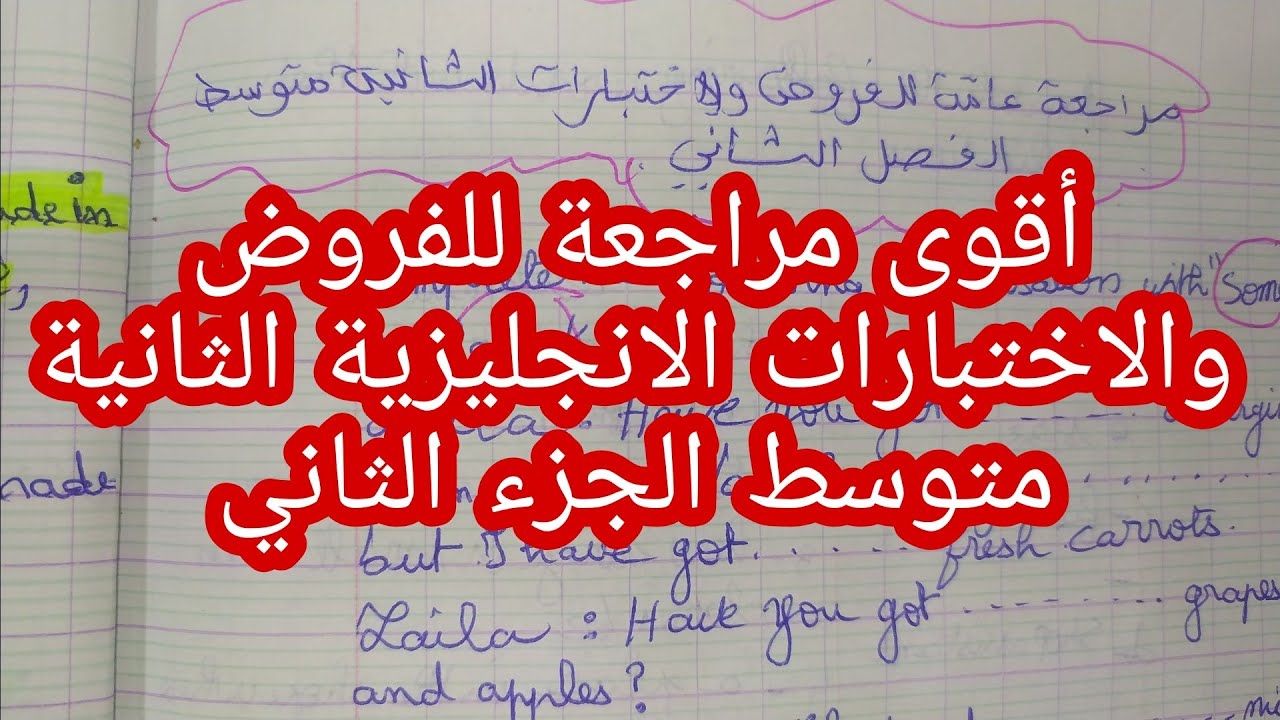 مراجعة عامة للفروض والاختبارات الثانية متوسط
الفصل الثاني.
أقوى مراجعة للفروض
والاختبارات الانجليزية الثانية
متوسط الجزء الثاني
made in
made
with "Some
: Have you
but I have got ...... fresh carrots.
Laila : Have you got --------- grapes
and apples?